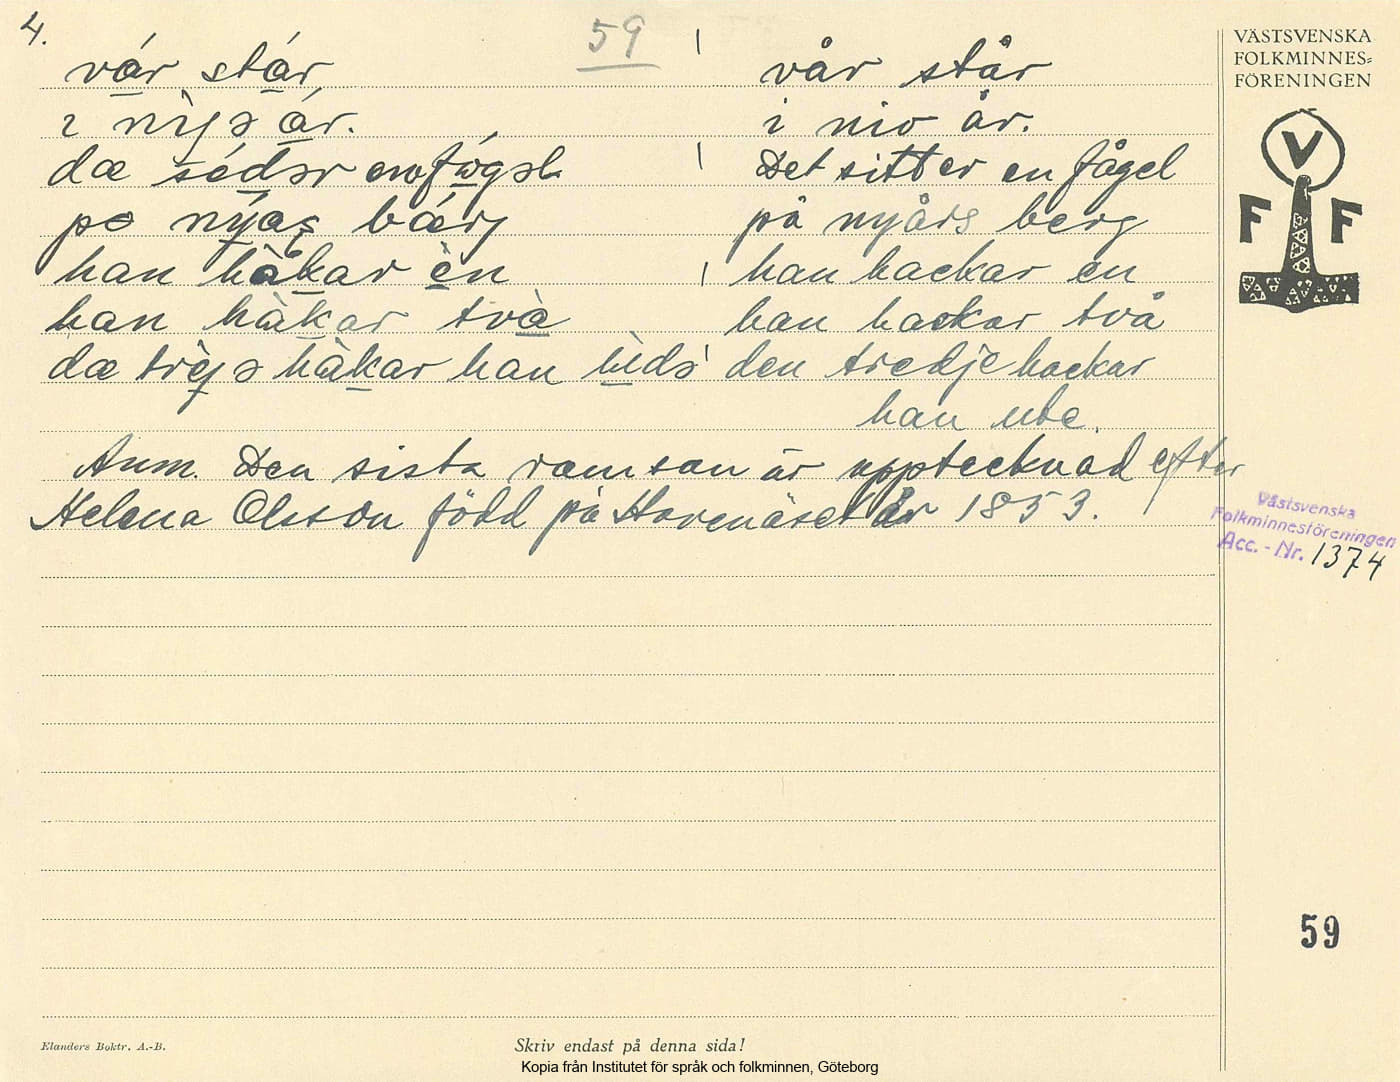 4.
59
VÄSTSVENSKA
FOLKMINNES-
FÖRENINGEN
V
F F
vár stár
vår står
ı nìjə ár.
i nio år.
dæ sédər en fógəl
Det sitter en fågel
po nýas bǽrj
på nyårs berg
han hàkar èn
han hackar en
han hàkar två̀
han hackar två
dæ trèjə hàkar han ùdə
den tredje hackar
han ute.
Anm. Den sista ramsan är upptecknad efter
Helena Olsson född på Hovenäset år 1853.
Västsvenska
Folkminnesföreningen
Acc. - Nr. 1374
59
Elanders Boktr. A.-B.
Skriv endast på denna sida!
Kopia från Institutet för språk och folkminnen, Göteborg